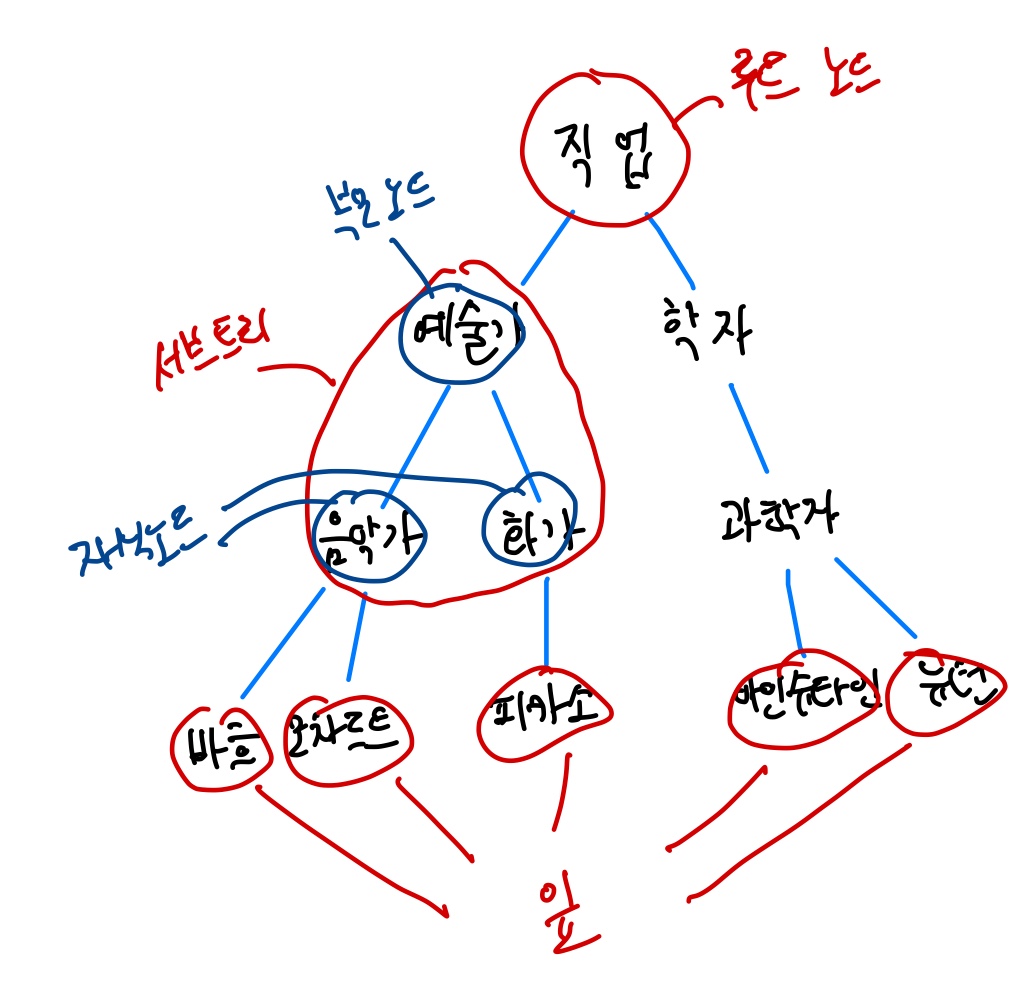 루트 노드
직업
부모노드
예술가
학자
서브트리
음악가
화가
과학자
자식노드
바흐
모차르트
피카소
아인슈타인
뉴턴
잎